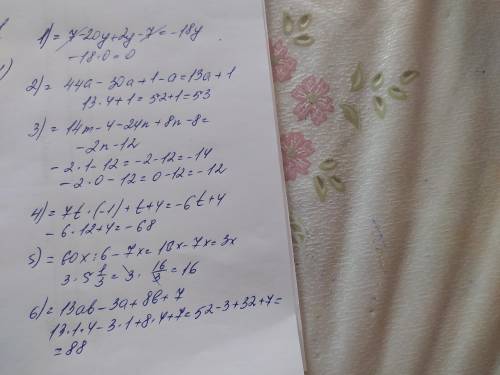 1) = 7-20y+2y-7=-18y
-18·0=0
2) = 44a-30a+1-a=13a+1
13·4+1=52+1=53
3) = 14m-4-24n+8n-8=
-2n-12
-2·1-12=-2-12=-14
-2·0-12=0-12=-12
4) = 7t·(-1)+t+4=-6t+4
-6·12+4=-68
5) = 60x:6-7x=10x-7x=3x
3·5 1/3=3·16/3=16
6) = 13ab-3a+8b+7
13·1·4-3·1+8·4+7=52-3+32+7=
=88